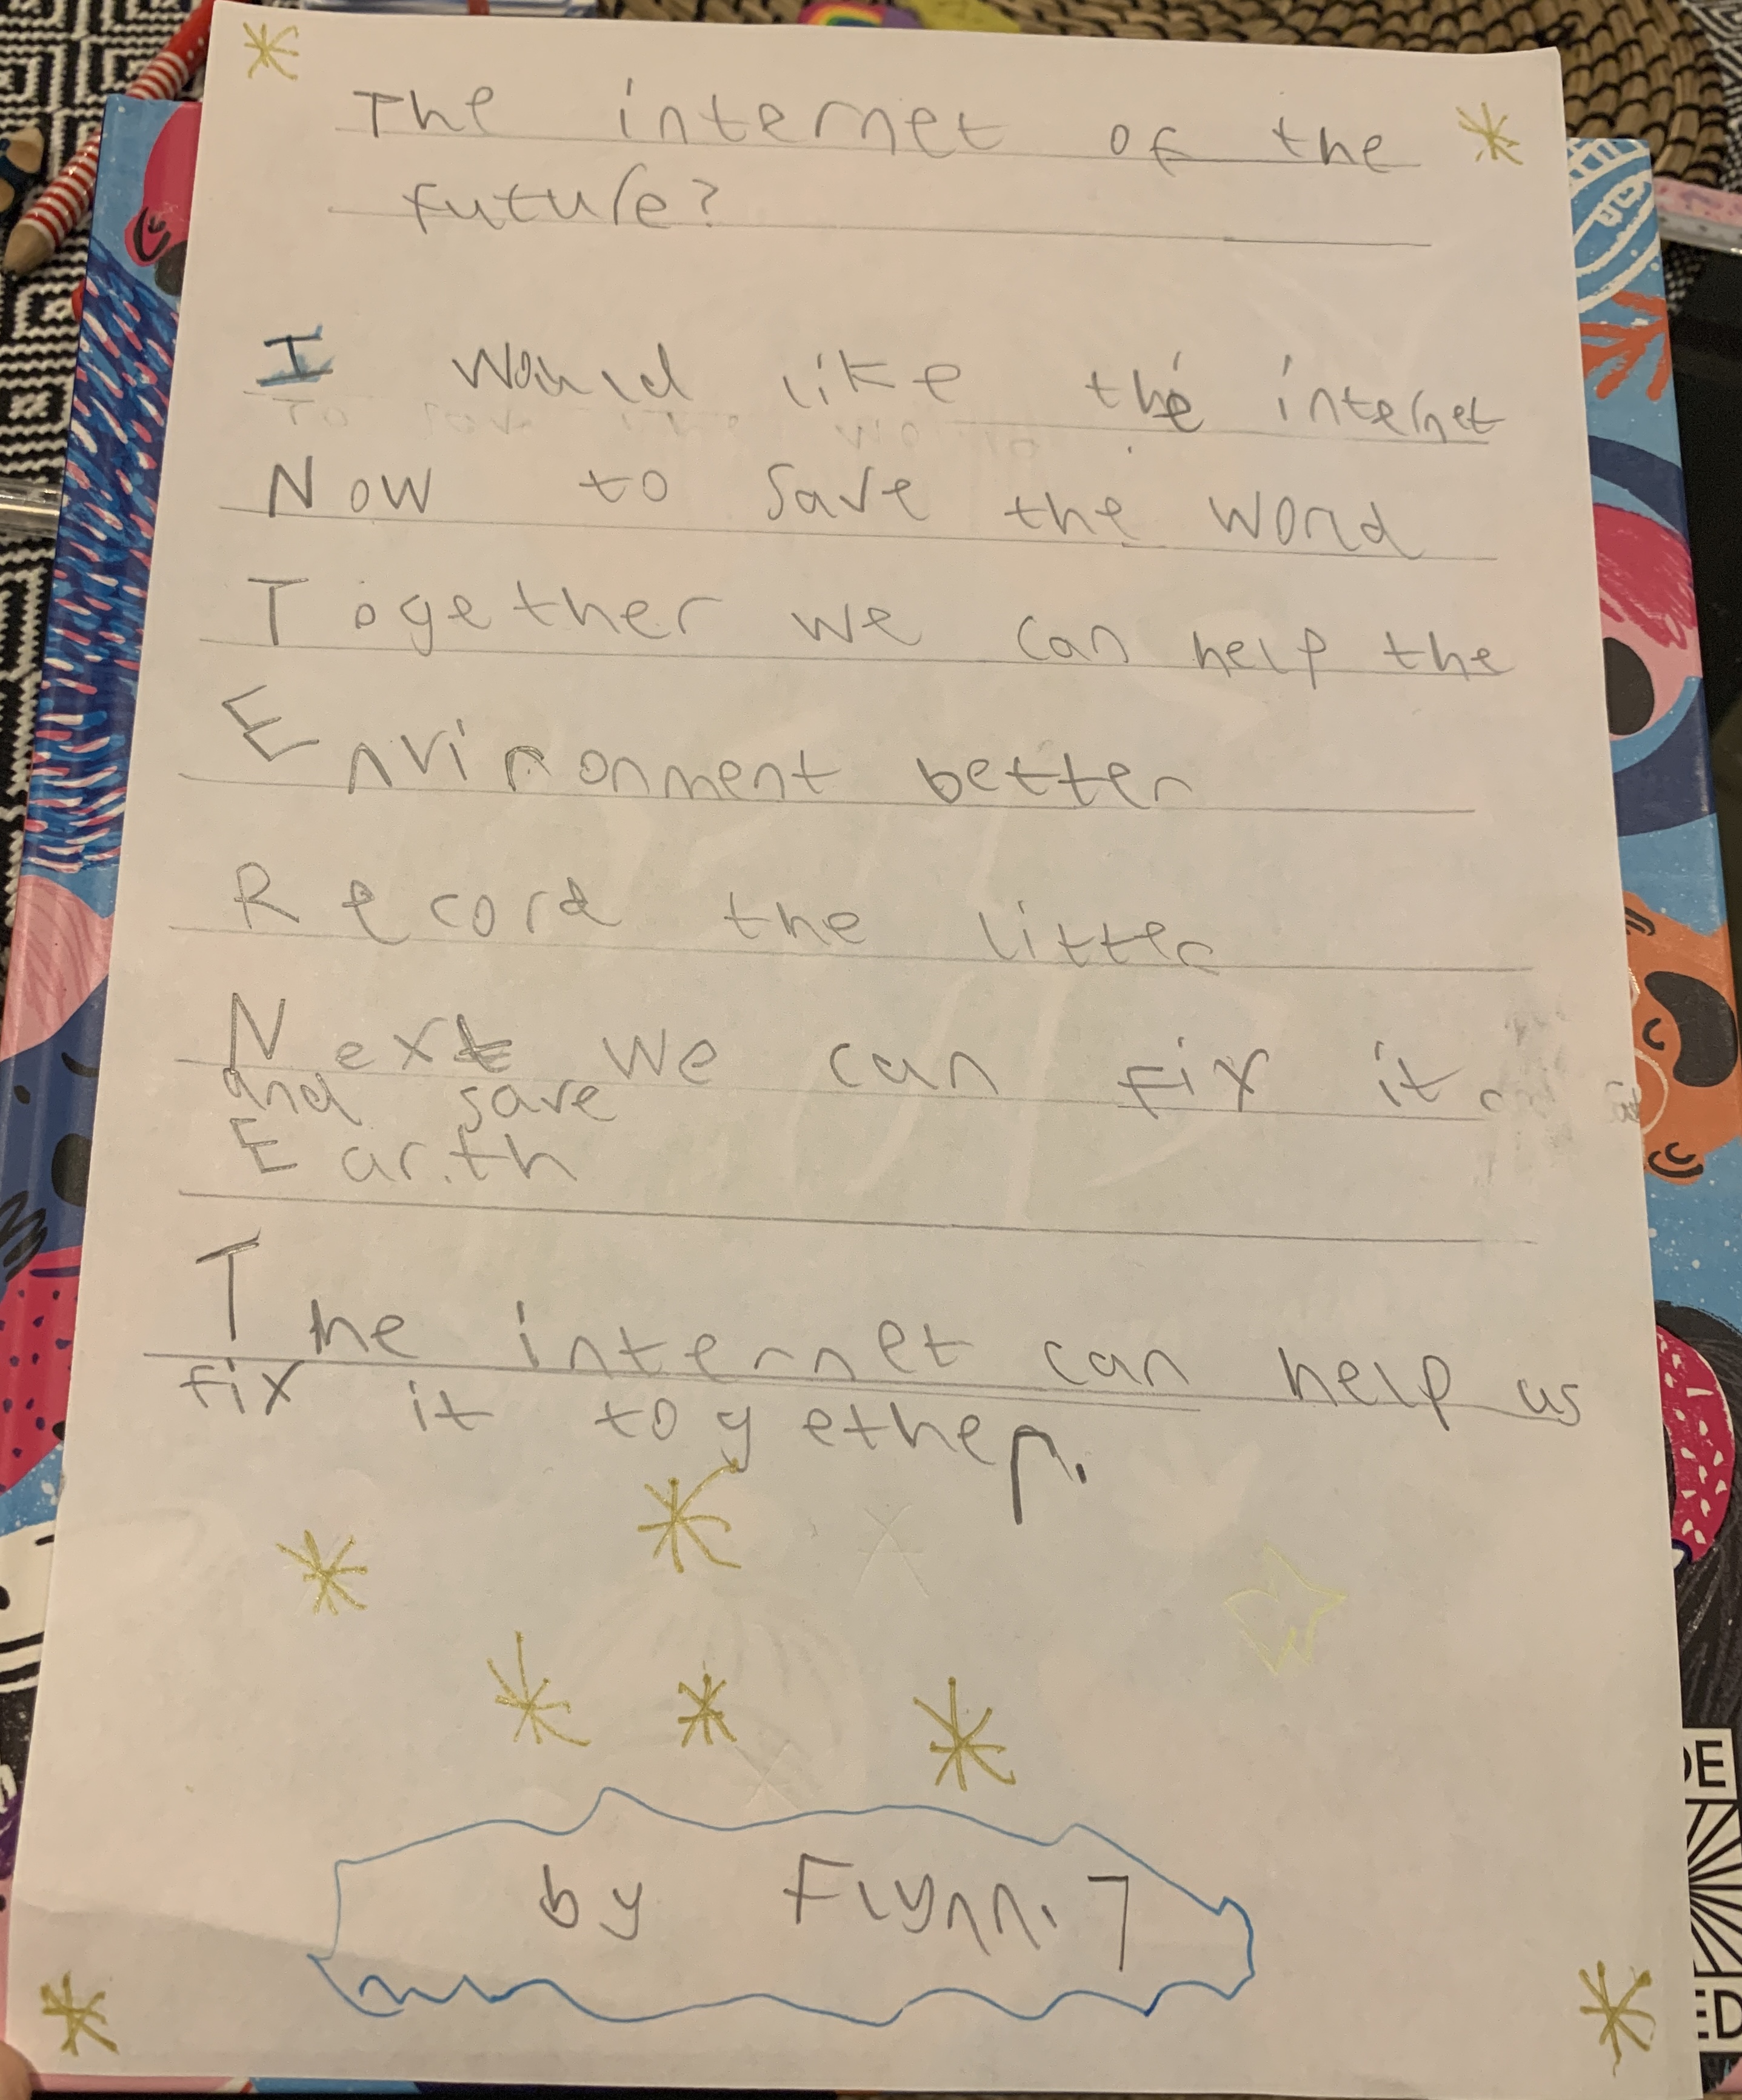 The internet of the
future?
I would like the internet
Now to save the word
Together we can help the
Environment better
Record the litter
Next we can fix it
and save
Earth
The internet can help us
fix it together.
by Flynn. 7